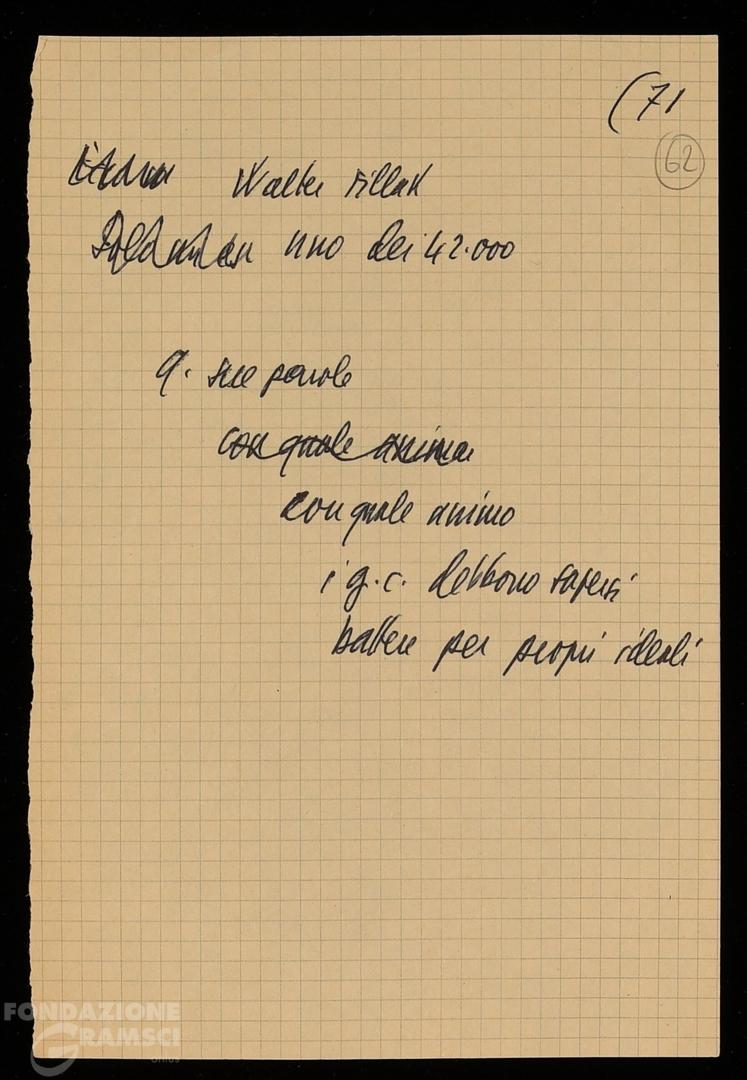 (71
62
Walter Fillak
uno dei 42.000
q. sue parole
con quale anima
con quale animo
i g.c. debbono sapersi
battere per propri ideali
FONDAZIONE
GRAMSCI
onlus